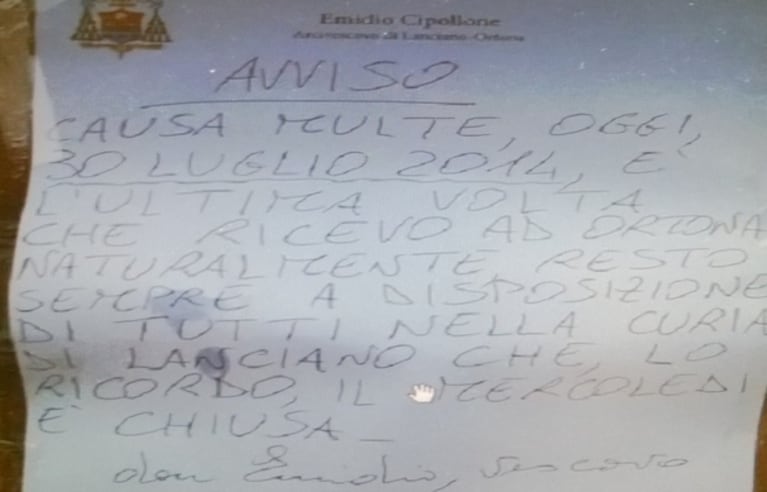 Emidio Cipollone
Arcivescovo di Lanciano-Ortona
AVVISO
CAUSA MULTE, OGGI,
30 LUGLIO 2014, E'
L'ULTIMA VOLTA
CHE RICEVO AD ORTONA
NATURALMENTE, RESTO
SEMPRE A DISPOSIZIONE
DI TUTTI NELLA CURIA
DI LANCIANO CHE, LO
RICORDO, IL MERCOLEDI
E' CHIUSA_
don Emidio, vescovo